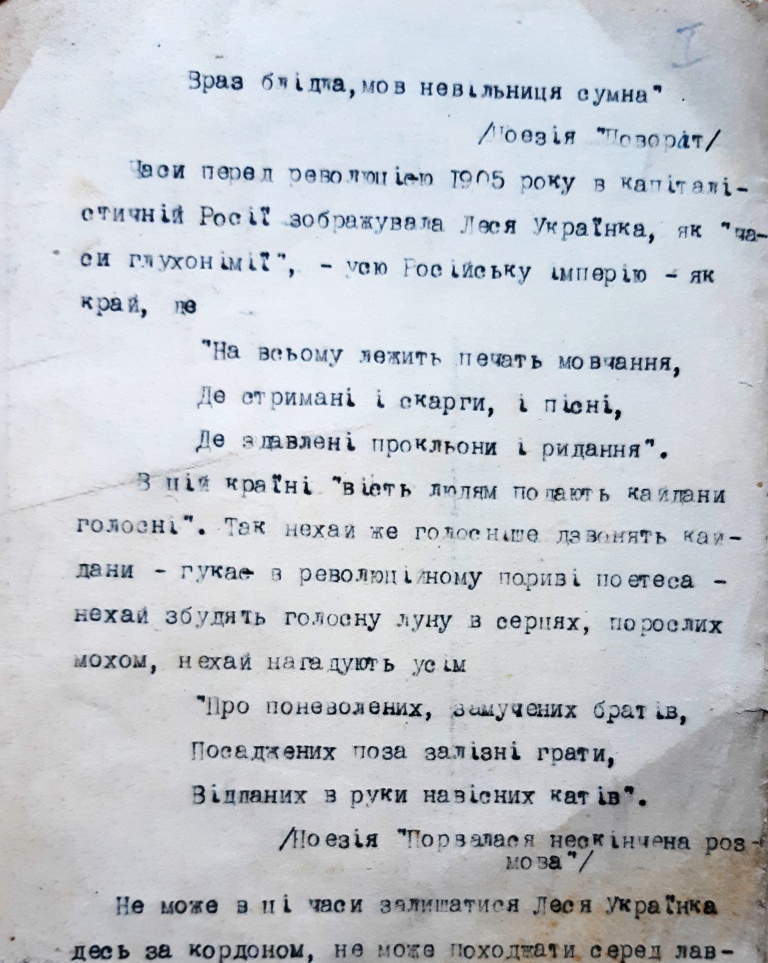 I
Враз блідла, мов невільниця сумна"
/Поезія "Поворот/
Часи перед революцією 1905 року в капіталі-
стичній Росії зображувала Леся Українка, як "ча-
си глухонімії", - усю Російську імперію - як
край, де
"На всьому лежить печать мовчання,
Де стримані і скарги, і пісні,
Де здавлені прокльони і ридання".
В цій країні "вість людям подають кайдани
голосні". Так нехай же голосніше дзвонять кай-
дани - гукає в революційному пориві поетеса -
нехай збудять голосну луну в серцях, порослих
мохом, нехай нагадують усім
"Про поневолених, замучених братів,
Посаджених поза залізні грати,
Відданих в руки навісних катів".
/Поезія "Порвалася нескінчена роз-
мова"/
Не може в ці часи залишатися Леся Українка
десь за кордоном, не може походжати серед лав-